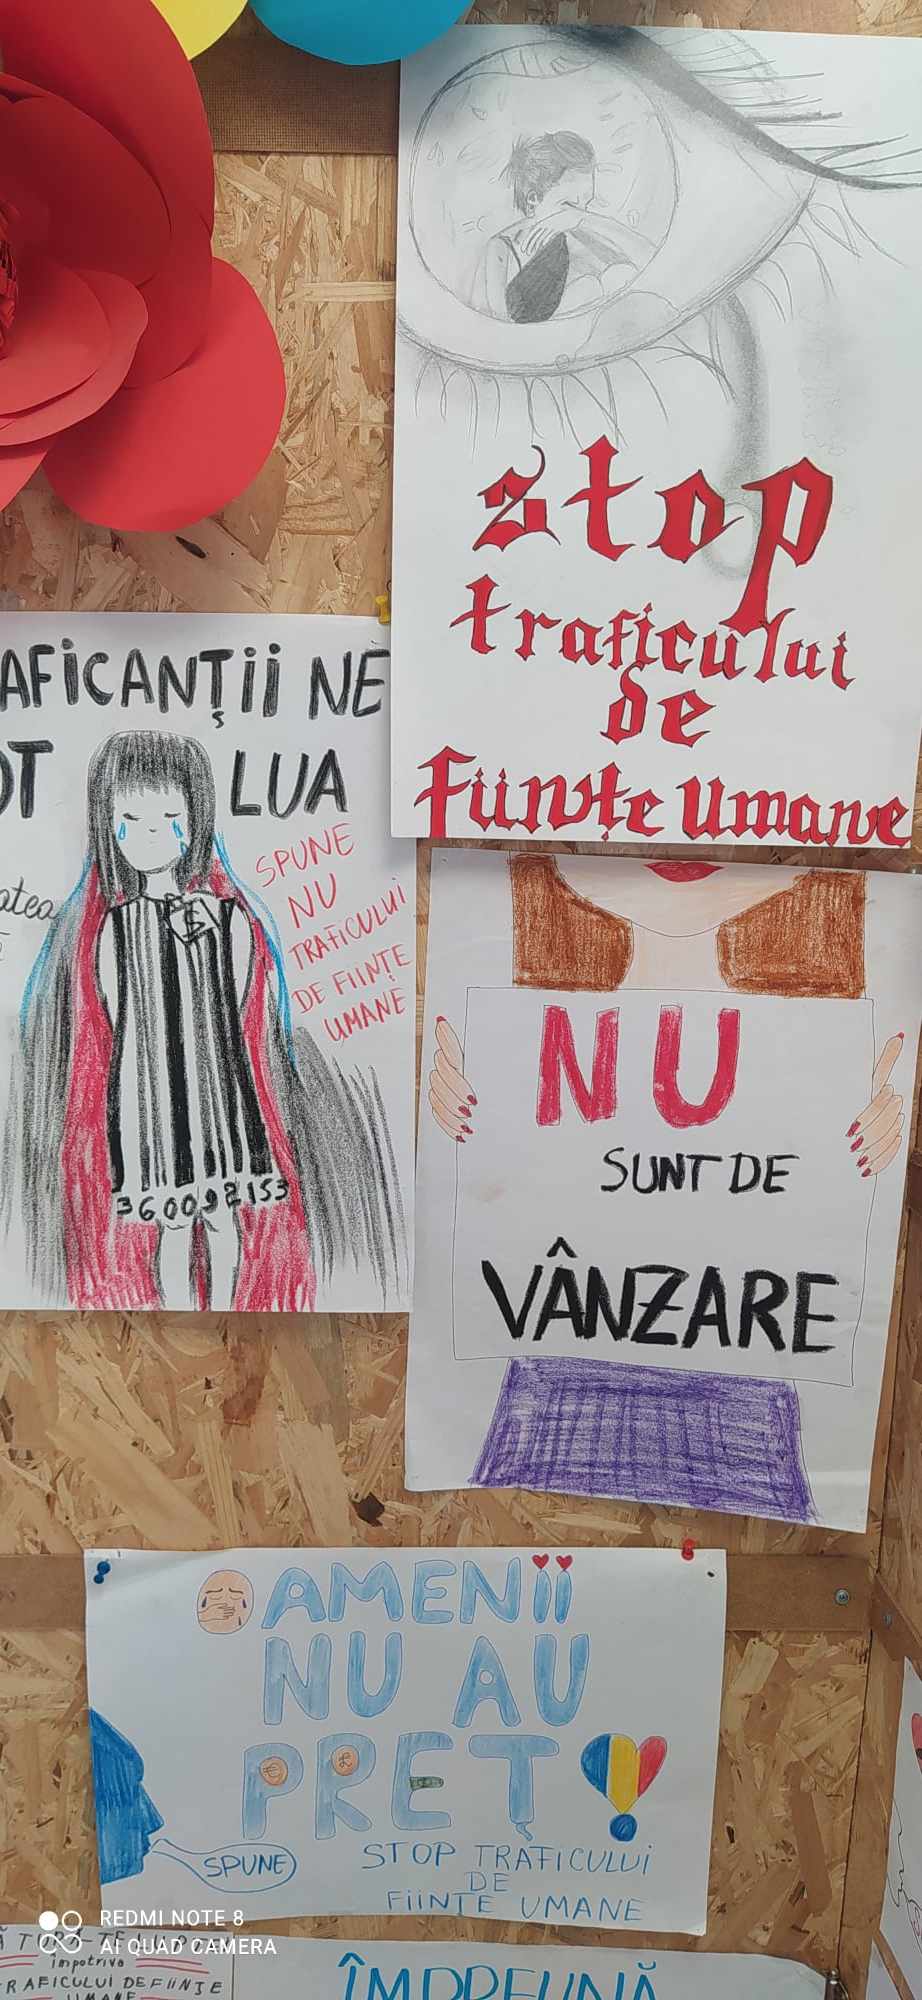 stop
traficului
de
Ființe Umane
AFICANȚII NE
OT LUA
atea
SPUNE
NU
TRAFICULUI
DE FIINȚE
UMANE
$
360092153
NU
SUNT DE
VÂNZARE
OAMENII
NU AU
PREȚ
€ £
SPUNE
STOP TRAFICULUI
DE
FIINȚE UMANE
REDMI NOTE 8
AI QUAD CAMERA
împotriva
RAFICULUI DE FIINȚE
UMANE
ÎMPREUNĂ